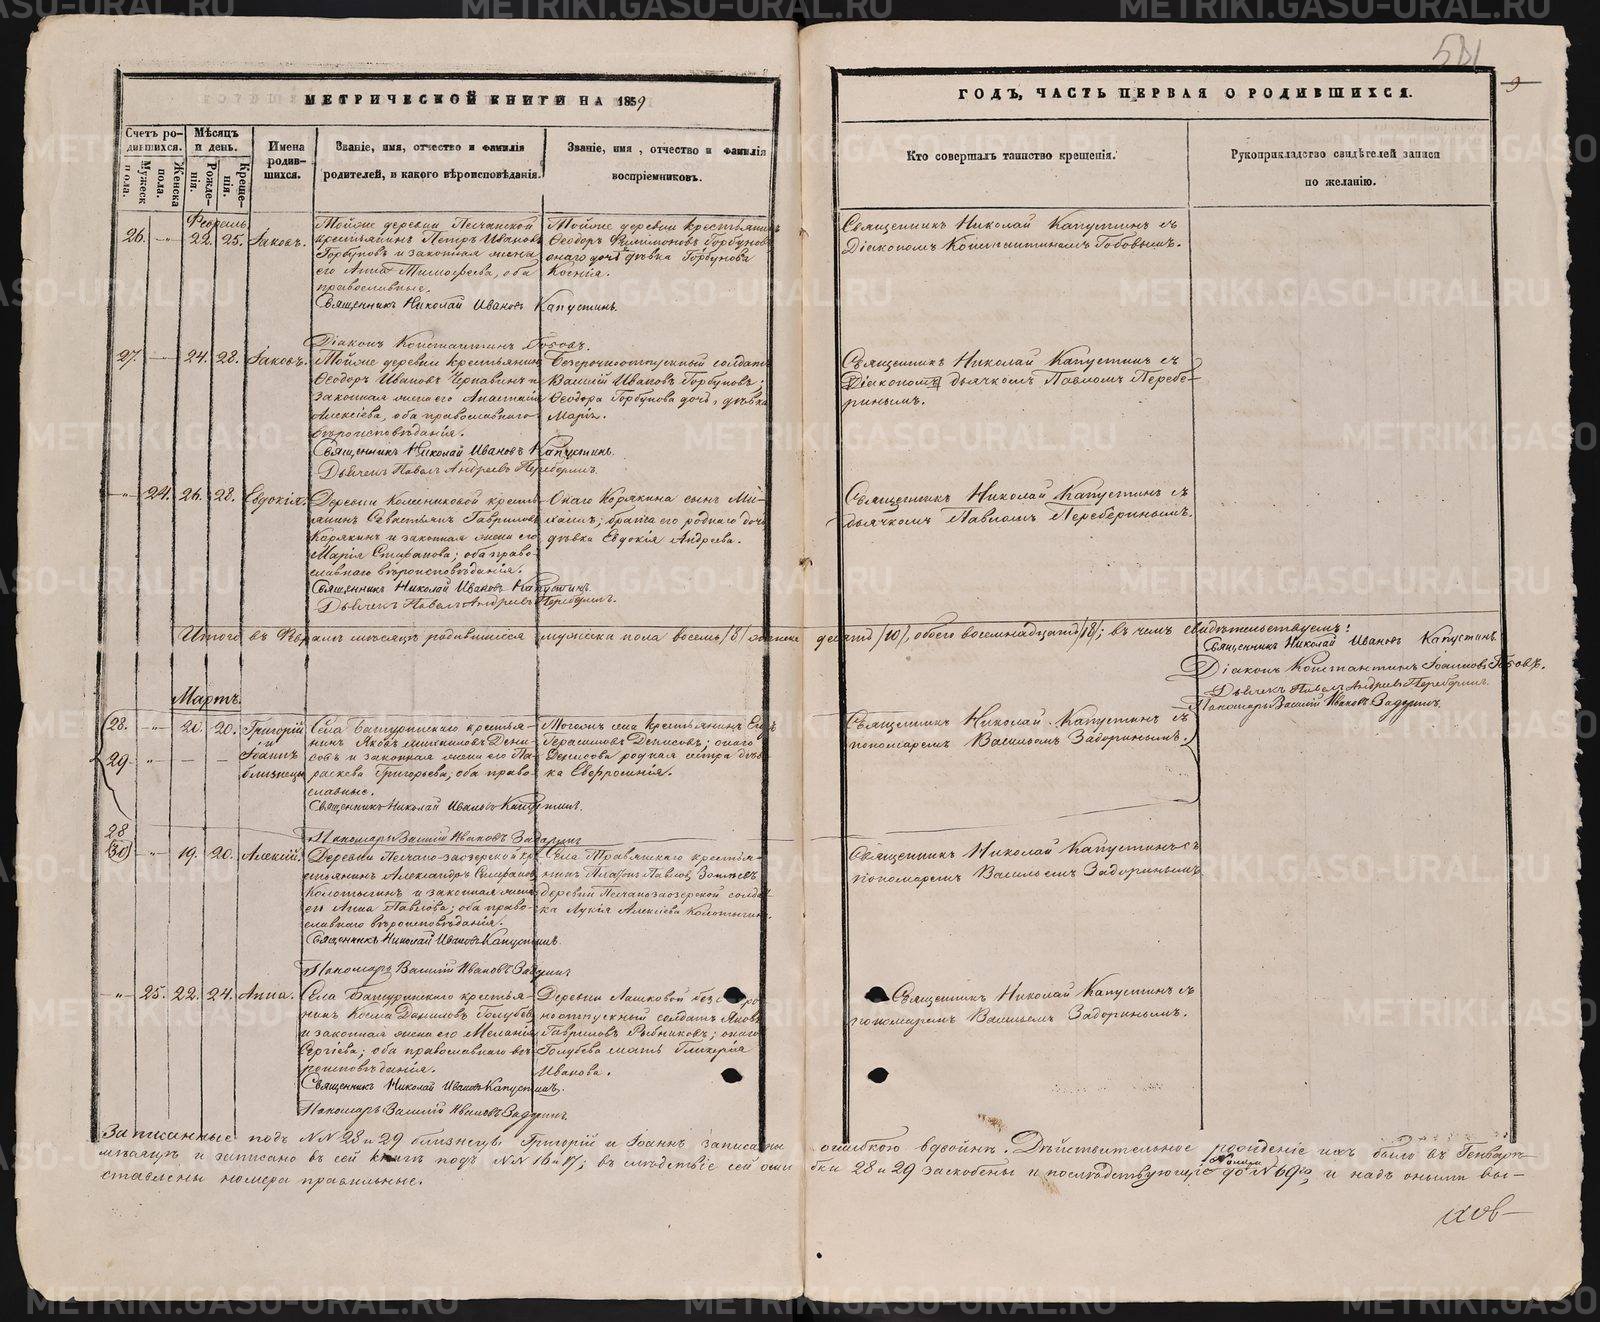 МЕТРИЧЕСКОЙ КНИГИ НА 1859
Счетъ ро-
дившихся.
Мѣсяцъ
и день.
Мужеска
пола.
Женска
пола.
Рожде-
нія.
Креще-
нія.
Имена
родив-
шихся.
Званіе, имя, отчество и фамилія
родителей, и какого вѣроисповѣданія.
Званіе, имя, отчество и фамилія
воспріемниковъ.
Февраль
26. -„- 22. 25. Іаковъ.
Тойже деревни Песчанской
крестьянинъ Петръ Ивановъ
Горбуновъ и законная жена
его Анна Тимофеева, оба
православные.
Священникъ Николай Ивановъ Капустинъ.
Діаконъ Константинъ
Тойже деревни крестьянинъ
Ѳеодоръ Филимоновъ Горбуновъ
онаго дочь дѣвка Горбунова
Ксенія.
27. -„- 24. 28. Іаковъ.
Тойже деревни крестьянинъ
Ѳеодоръ Ивановъ Чернавинъ и
законная жена его Анастасія
Алексіева, оба православнаго
вѣроисповѣданія.
Священникъ Николай Ивановъ Капустинъ.
Дьячекъ Павелъ Андреевъ Переберинъ.
Безсрочноотпускный солдатъ
Василій Ивановъ Горбуновъ;
Ѳеодора Горбунова дочь, дѣвка
Марія.
-„- 24. 26. 28. Евдокія.
Деревни Колениковой кресть-
янинъ Севастьянъ Гавриловъ
Карякинъ и законная жена его
Марія Стефанова; оба право-
славнаго вѣроисповѣданія.
Священникъ Николай Ивановъ Капустинъ.
Дьячекъ Павелъ Андреевъ Переберинъ.
Онаго Корякина сынъ Ми-
хаилъ; брата его роднаго дочь
дѣвка Евдокія Андреева.
Итого въ Февралѣ мѣсяцѣ родившихся мужеска пола восемь /8/ женска
Мартъ.
(28. -„- 20. 20. Григорій
и
29 -„- — — Іоаннъ
близнецы
Села Батуринскаго крестья-
нинъ Яковъ Михаиловъ Дени-
совъ и законная жена его Па-
раскева Григорьева, оба право-
славные.
Священникъ Николай Ивановъ Капустинъ.
Пономарь Василій Ивановъ Задоринъ
Тогожъ села крестьянинъ
Герасимовъ Денисовъ; онаго
Денисова родная сестра дѣв-
ка Евфросинія.
28
(30) -„- 19. 20. Алексій.
Деревни Песчано-заозерской кре-
стьянинъ Александръ
Колотыгинъ и законная жена
его Анна Павлова; оба право-
славнаго вѣроисповѣданія.
Священникъ Николай Ивановъ Капустинъ.
Пономарь Василій Ивановъ Задоринъ
Села Травянскаго крестья-
нинъ Платонъ Павлов
деревни Песчанозаозерской солдат-
ка Лукія Алексіева Колотыгина.
-„- 25. 22. 24. Анна.
Села Батуринскаго крестья-
нинъ Косма Даниловъ Голубев
и законная жена его Меланія
Сергіева; оба православнаго вѣ-
роисповѣданія.
Священникъ Николай Ивановъ Капустинъ.
Пономарь Василій Ивановъ Задоринъ.
Деревни Лашковой безсроч-
ноотпускный солдатъ Яковъ
Гавриловъ Рыбниковъ; онаго
Голубева мать Гликерія
Иванова.
Записанные подъ NN 28 и 29 близнецы Григорій и Іоаннъ записаны
мѣсяцѣ и записано въ сей книгѣ подъ NN 16 и 17; въ слѣдствіе сей оши
ставлены номера правильные.
541
9
ГОДЪ, ЧАСТЬ ПЕРВАЯ О РОДИВШИХСЯ.
Кто совершалъ таинство крещенія.
Рукоприкладство свидѣтелей записи
по желанію.
Священникъ Николай Капустинъ съ
Діакономъ Константиномъ
Священникъ Николай Капустинъ съ
дьячкомъ Павломъ Перебе-
ринымъ.
Священникъ Николай Капустинъ съ
дьячкомъ Павломъ Переберинымъ.
десять /10/, обоего восемнадцать /18/; въ чемъ свидѣтельствуемъ:
Священникъ Николай Ивановъ Капустинъ.
Діаконъ Константинъ Іоанновъ
Дьячекъ Павелъ Андреевъ Переберинъ.
Пономарь Василій Ивановъ Задоринъ.
Священникъ Николай Капустинъ съ
пономаремъ Васильемъ Задоринымъ.
Священникъ Николай Капустинъ съ
пономаремъ Васильемъ Задоринымъ.
Священникъ Николай Капустинъ съ
пономаремъ Васильемъ Задоринымъ.
ошибкою вдвойнѣ. Дѣйствительное рожденіе ихъ было въ Генварѣ
бки 28 и 29 заскобены и послѣдствующіе до N 69го, и надъ оными вы-
METRIKI.GASO-URAL.RU